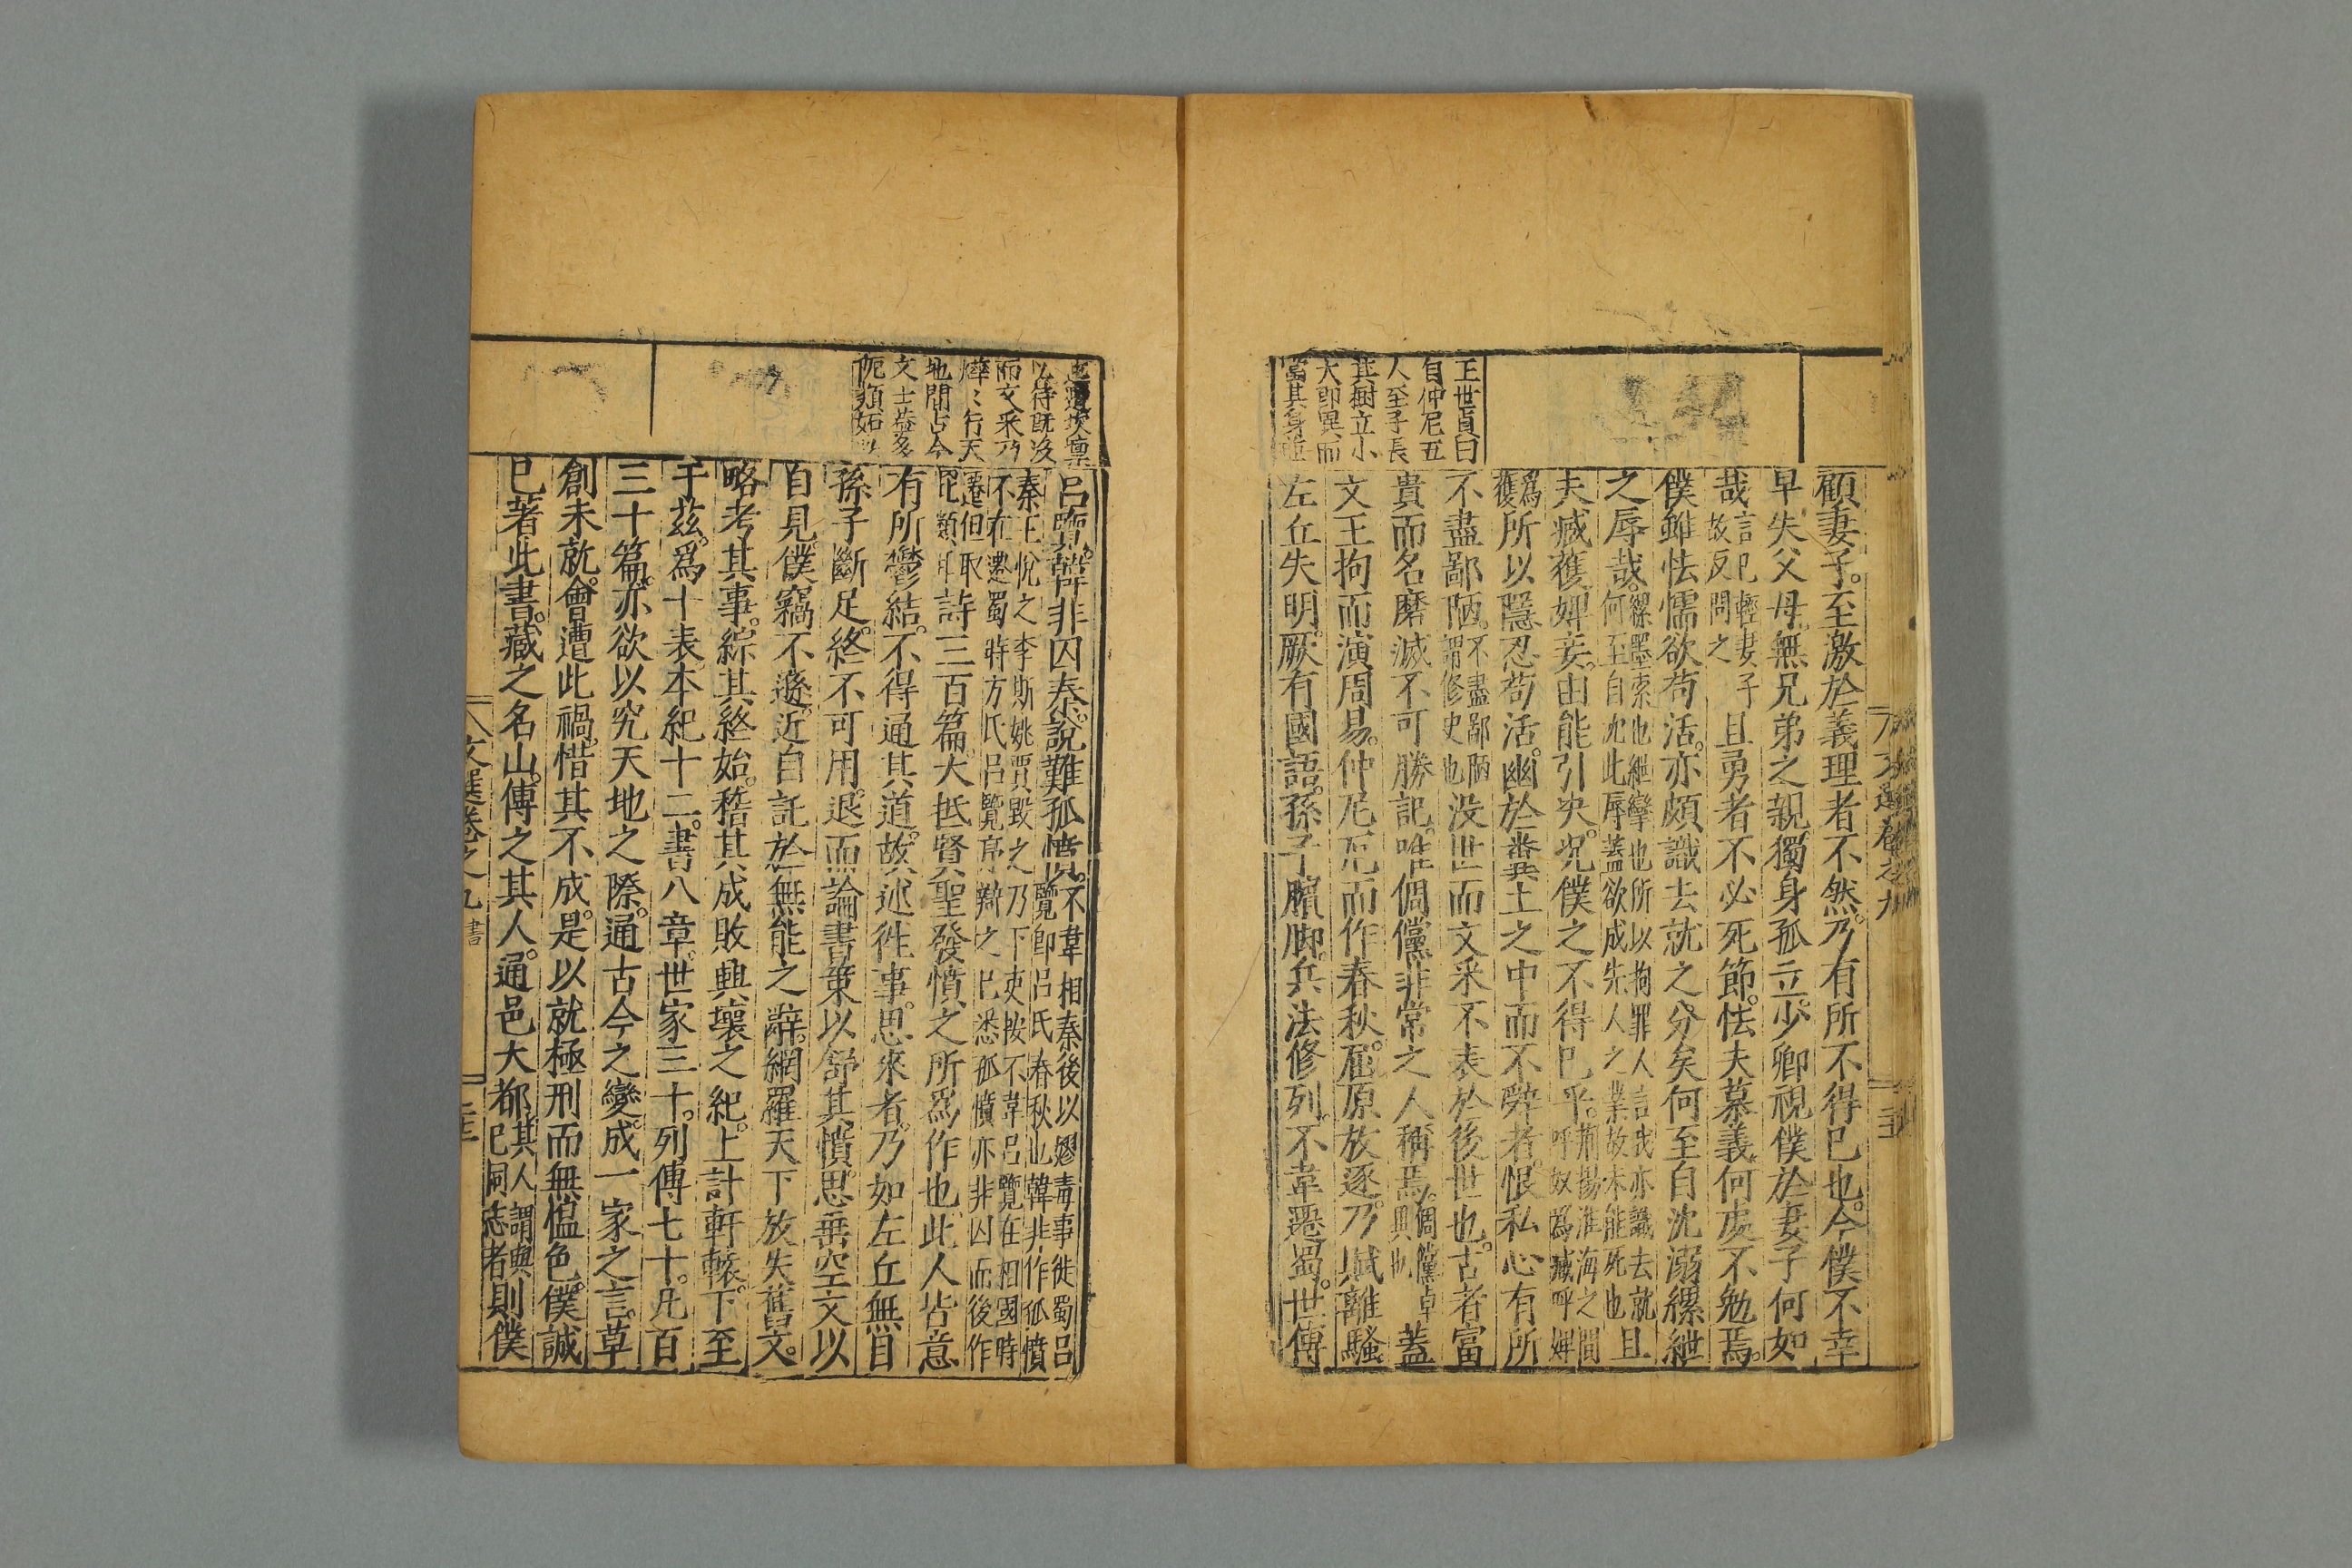 文選卷之九
顧妻子。至激於義理者不然。乃有所不得已也。今僕不幸
早失父母無兄弟之親獨身孤立。少卿視僕於妻子何如
哉言已輕妻子故反問之且勇者不必死節。怯夫慕義何處不勉焉。
僕雖怯懦欲苟活。亦頗識去就之分矣何至自沈溺縲紲
之辱哉。縲墨索也紲攣也所以拘罪人言我亦識去就何至自沈此辱蓋欲成先人之業故未能死也且
夫臧獲婢妾。由能引決。况僕之不得已乎。荆揚淮海之間呼奴為臧呼婢
爲獲所以隱忍苟活。幽於糞土之中而不辭者。恨私心有所
不盡鄙陋。不盡鄙陋謂修史也没世而文采不表於後世也。古者富
貴而名磨滅不可勝記。唯倜儻非常之人稱焉。倜儻卓異也蓋
文王拘而演周易。仲尼戹而作春秋。屈原放逐。乃賦離騷
左丘失明。厥有國語。孫子臏脚。兵法修列。不韋遷蜀。世傳
王世貞曰
自仲尼五
人至子長
其樹立小
大即異而
當其身並
以待既没
而文采乃
燁々行天
地間古今
文士蓋多
呂覽。韓非囚秦。說難孤憤。不韋相秦後以嫪毐事徙蜀呂覽卽呂氏春秋也韓非作孤憤
秦王悅之李斯姚賈毀之乃下吏按不韋呂覽在相國時不在遷蜀時方氏呂覽序辯之已悉孤憤亦非囚而後作
遷但取詩三百篇。大抵賢聖發憤之所爲作也此人皆意
有所鬱結。不得通其道。故述徃事。思來者。乃如左丘無目
孫子斷足。終不可用。退而論書策以舒其憤。思垂空文以
自見。僕竊不遜。近自託於無能之辭。網羅天下放失舊文。
略考其事。綜其終始。稽其成敗興壞之紀。上計軒轅。下至
于茲。爲十表本紀十二。書八章。世家三十。列傳七十。凡百
三十篇。亦欲以究天地之際。通古今之變。成一家之言。草
創未就。會遭此禍。惜其不成。是以就極刑而無慍色。僕誠
已著此書。藏之名山。傳之其人。通邑大都其人謂與已同志者則僕
文選卷之九 書